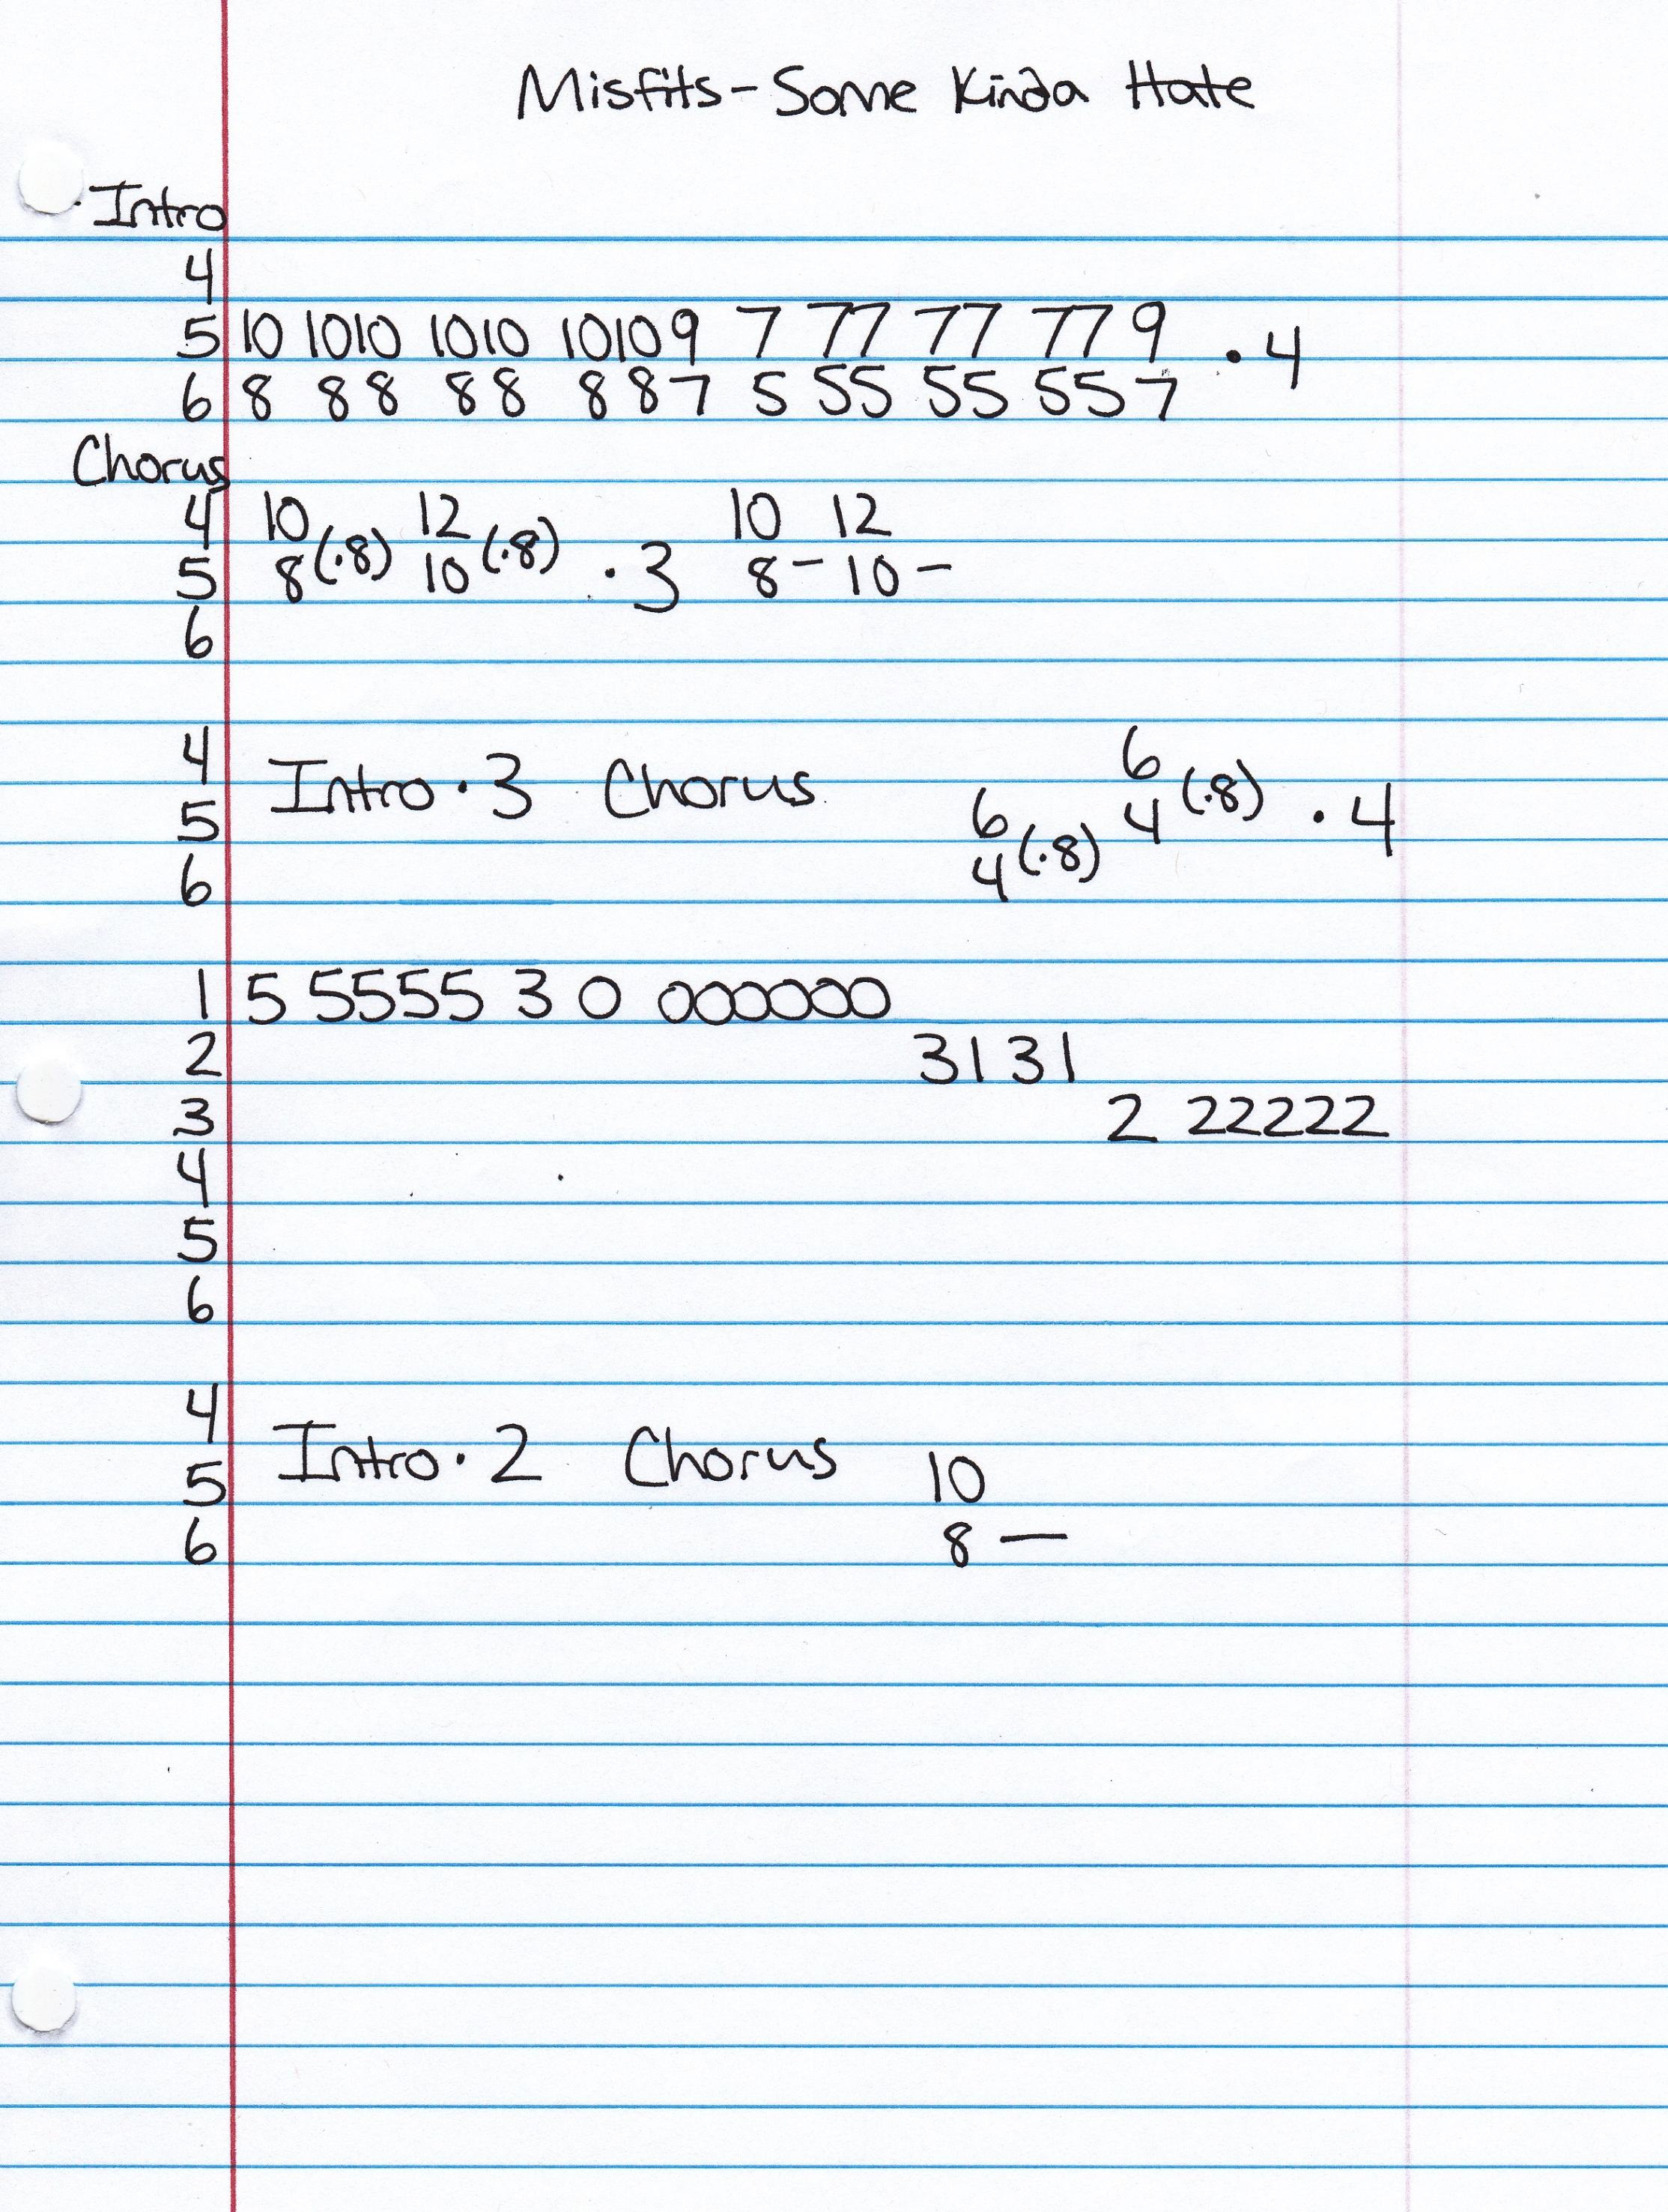 Misfits - Some Kinda Hate
Intro
4
5 10 1010 1010 10109 7 77 77 779 · 4
6 8 88 88 887 5 55 55 557
Chorus
4 10 12 10 12
(·8) (·8) · 3
5 8 10 8 - 10 -
6
4 6
Intro · 3 Chorus (·8) · 4
5 6 4
(·8)
6 4
1 5 5555 3 0 000000
2 3131
3 2 22222
4
5
6
4
Intro · 2 Chorus
5 10
6 8 —